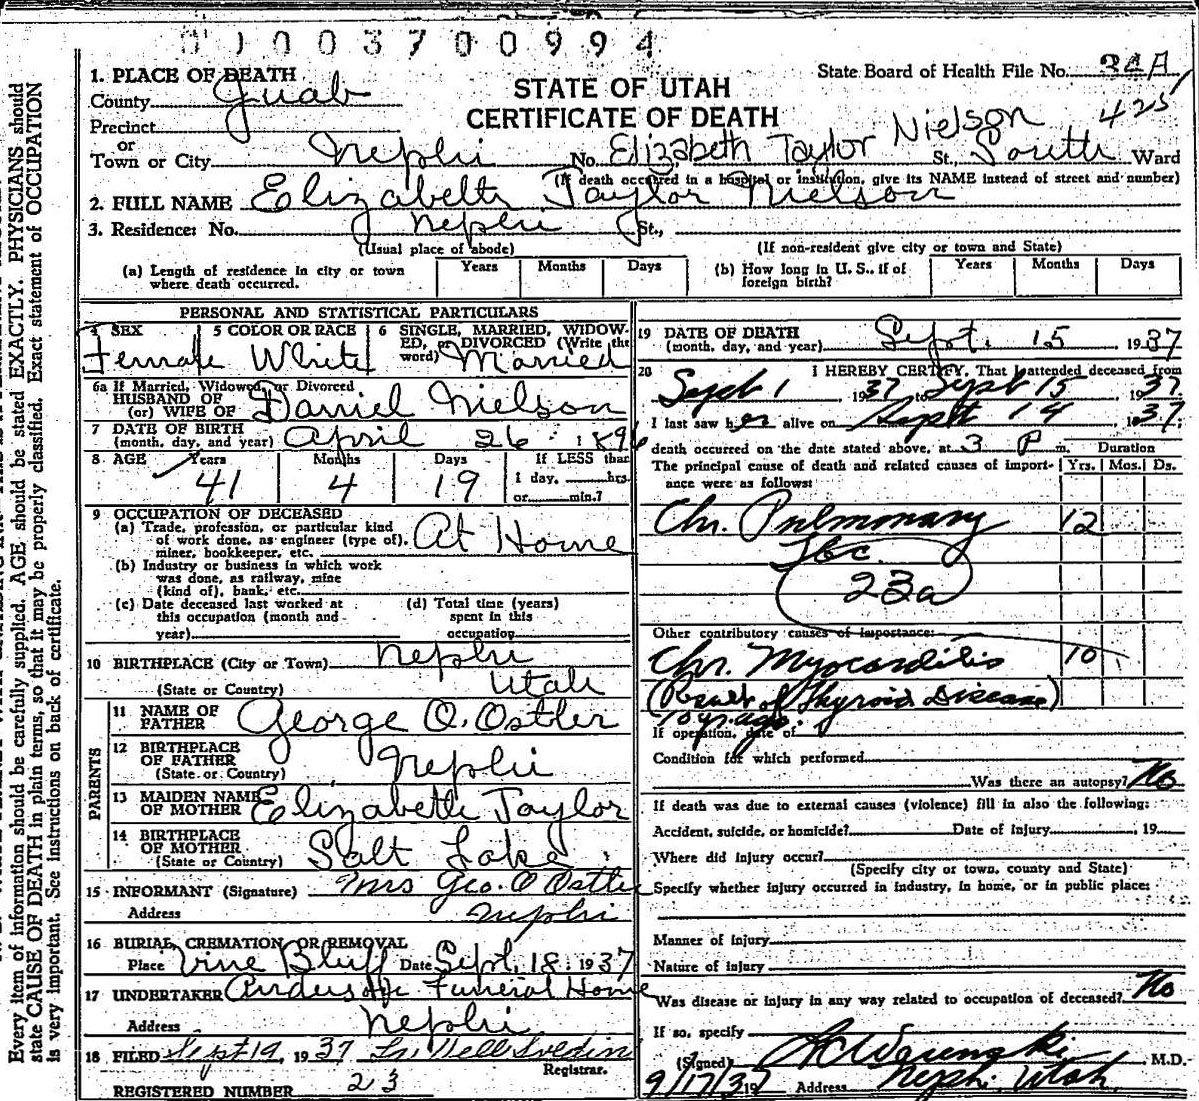 0 1 0 0 3 7 0 0 9 9 4
STATE OF UTAH
CERTIFICATE OF DEATH
State Board of Health File No. 34A
425
1. PLACE OF DEATH
County Juab
Precinct
or
Town or City Nephi No. Elizabeth Taylor Nielson St., South Ward
(If death occurred in a hospital or institution, give its NAME instead of street and number)
2. FULL NAME Elizabeth Taylor Nielson
3. Residence: No. Nephi St.,
(Usual place of abode) (If non-resident give city or town and State)
(a) Length of residence in city or town where death occurred. Years Months Days
(b) How long in U. S., if of foreign birth? Years Months Days
PERSONAL AND STATISTICAL PARTICULARS
4 SEX Female
5 COLOR OR RACE White
6 SINGLE, MARRIED, WIDOWED, or DIVORCED (Write the word) Married
6a If Married, Widowed, or Divorced
HUSBAND OF
(or) WIFE OF Daniel Nielson
7 DATE OF BIRTH
(month, day, and year) April 26 1896
8 AGE Years Months Days If LESS than
41 4 19 1 day, hrs.
or min.?
9 OCCUPATION OF DECEASED
(a) Trade, profession, or particular kind
of work done, as engineer (type of), At Home
miner, bookkeeper, etc.
(b) Industry or business in which work
was done, as railway, mine
(kind of), bank, etc.
(c) Date deceased last worked at
this occupation (month and
year)
(d) Total time (years)
spent in this
occupation
10 BIRTHPLACE (City or Town) Nephi
(State or Country) Utah
PARENTS
11 NAME OF
FATHER George O. Ostler
12 BIRTHPLACE
OF FATHER Nephi
(State or Country)
13 MAIDEN NAME
OF MOTHER Elizabeth Taylor
14 BIRTHPLACE
OF MOTHER Salt Lake
(State or Country)
15 INFORMANT (Signature) Mrs Geo. O Ostler
Address Nephi
16 BURIAL, CREMATION OR REMOVAL
Place Vine Bluff Date Sept. 18, 1937
17 UNDERTAKER Anderson Funeral Home
Address Nephi
18 FILED Sept 19, 1937
Registrar.
REGISTERED NUMBER 23
19 DATE OF DEATH
(month, day, and year) Sept. 15, 1937
20 I HEREBY CERTIFY, That I attended deceased from
Sept 1 1937 to Sept 15, 1937
I last saw her alive on Sept 14, 1937;
death occurred on the date stated above, at 3 P m. Duration
The principal cause of death and related causes of importance were as follows: Yrs. Mos. Ds.
Chr. Pulmonary 12
Tbc.
23a
Other contributory causes of importance:
Chr. Myocarditis 10
(Result of Thyroid Disease)
10 yr. ago.
If operation, date of
Condition for which performed
Was there an autopsy? No
If death was due to external causes (violence) fill in also the following:
Accident, suicide, or homicide? Date of injury , 19
Where did injury occur?
(Specify city or town, county and State)
Specify whether injury occurred in industry, in home, or in public place:
Manner of injury
Nature of injury
Was disease or injury in any way related to occupation of deceased? No
If so, specify
(Signed) M.D.
9/17/37 19 Address Nephi Utah
Every item of information should be carefully supplied. AGE should be stated EXACTLY. PHYSICIANS should
state CAUSE OF DEATH in plain terms, so that it may be properly classified. Exact statement of OCCUPATION
is very important. See instructions on back of certificate.